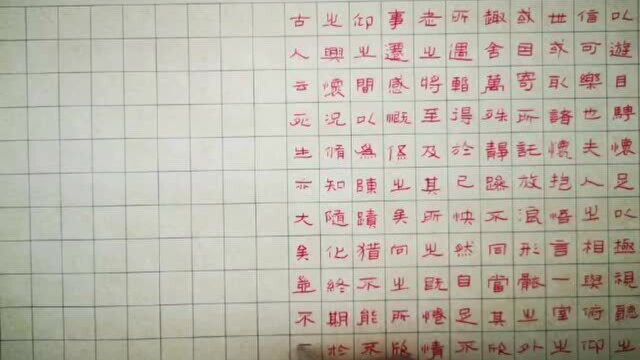 以遊目騁懷足以極視聽之
信可樂也夫人之相與俯仰
世或取諸懷抱悟言一室之
或因寄所託放浪形骸之外
趣舍萬殊靜躁不同當其欣
所遇暫得於己怏然自足不
老之將至及其所之既惓情
事遷感慨係之矣向之所欣
仰之間以為陳蹟猶不能不
之興懷況脩短隨化終期於
古人云死生亦大矣豈不